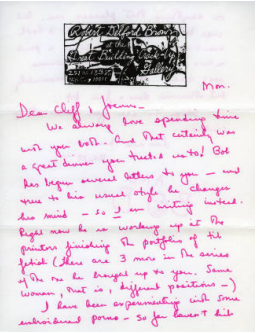 Robert Delford Brown
at the
Great Building Crack-Up
Gallery
Mon.
Dear Cliff & Joanne -
We always love spending time
with you both. And that certainly was
a great dinner you treated us to! Bob
has begun several letters to you - and
true to his usual style he changes
his mind - so I am writing instead.
Right now he is working up at the
printers finishing the portfolio of
fetish (there are 3 more in the series
of the one he brought up to you. Same
woman, that is, different positions -)
I have been experimenting with some
embroidered poems - so far haven't hit